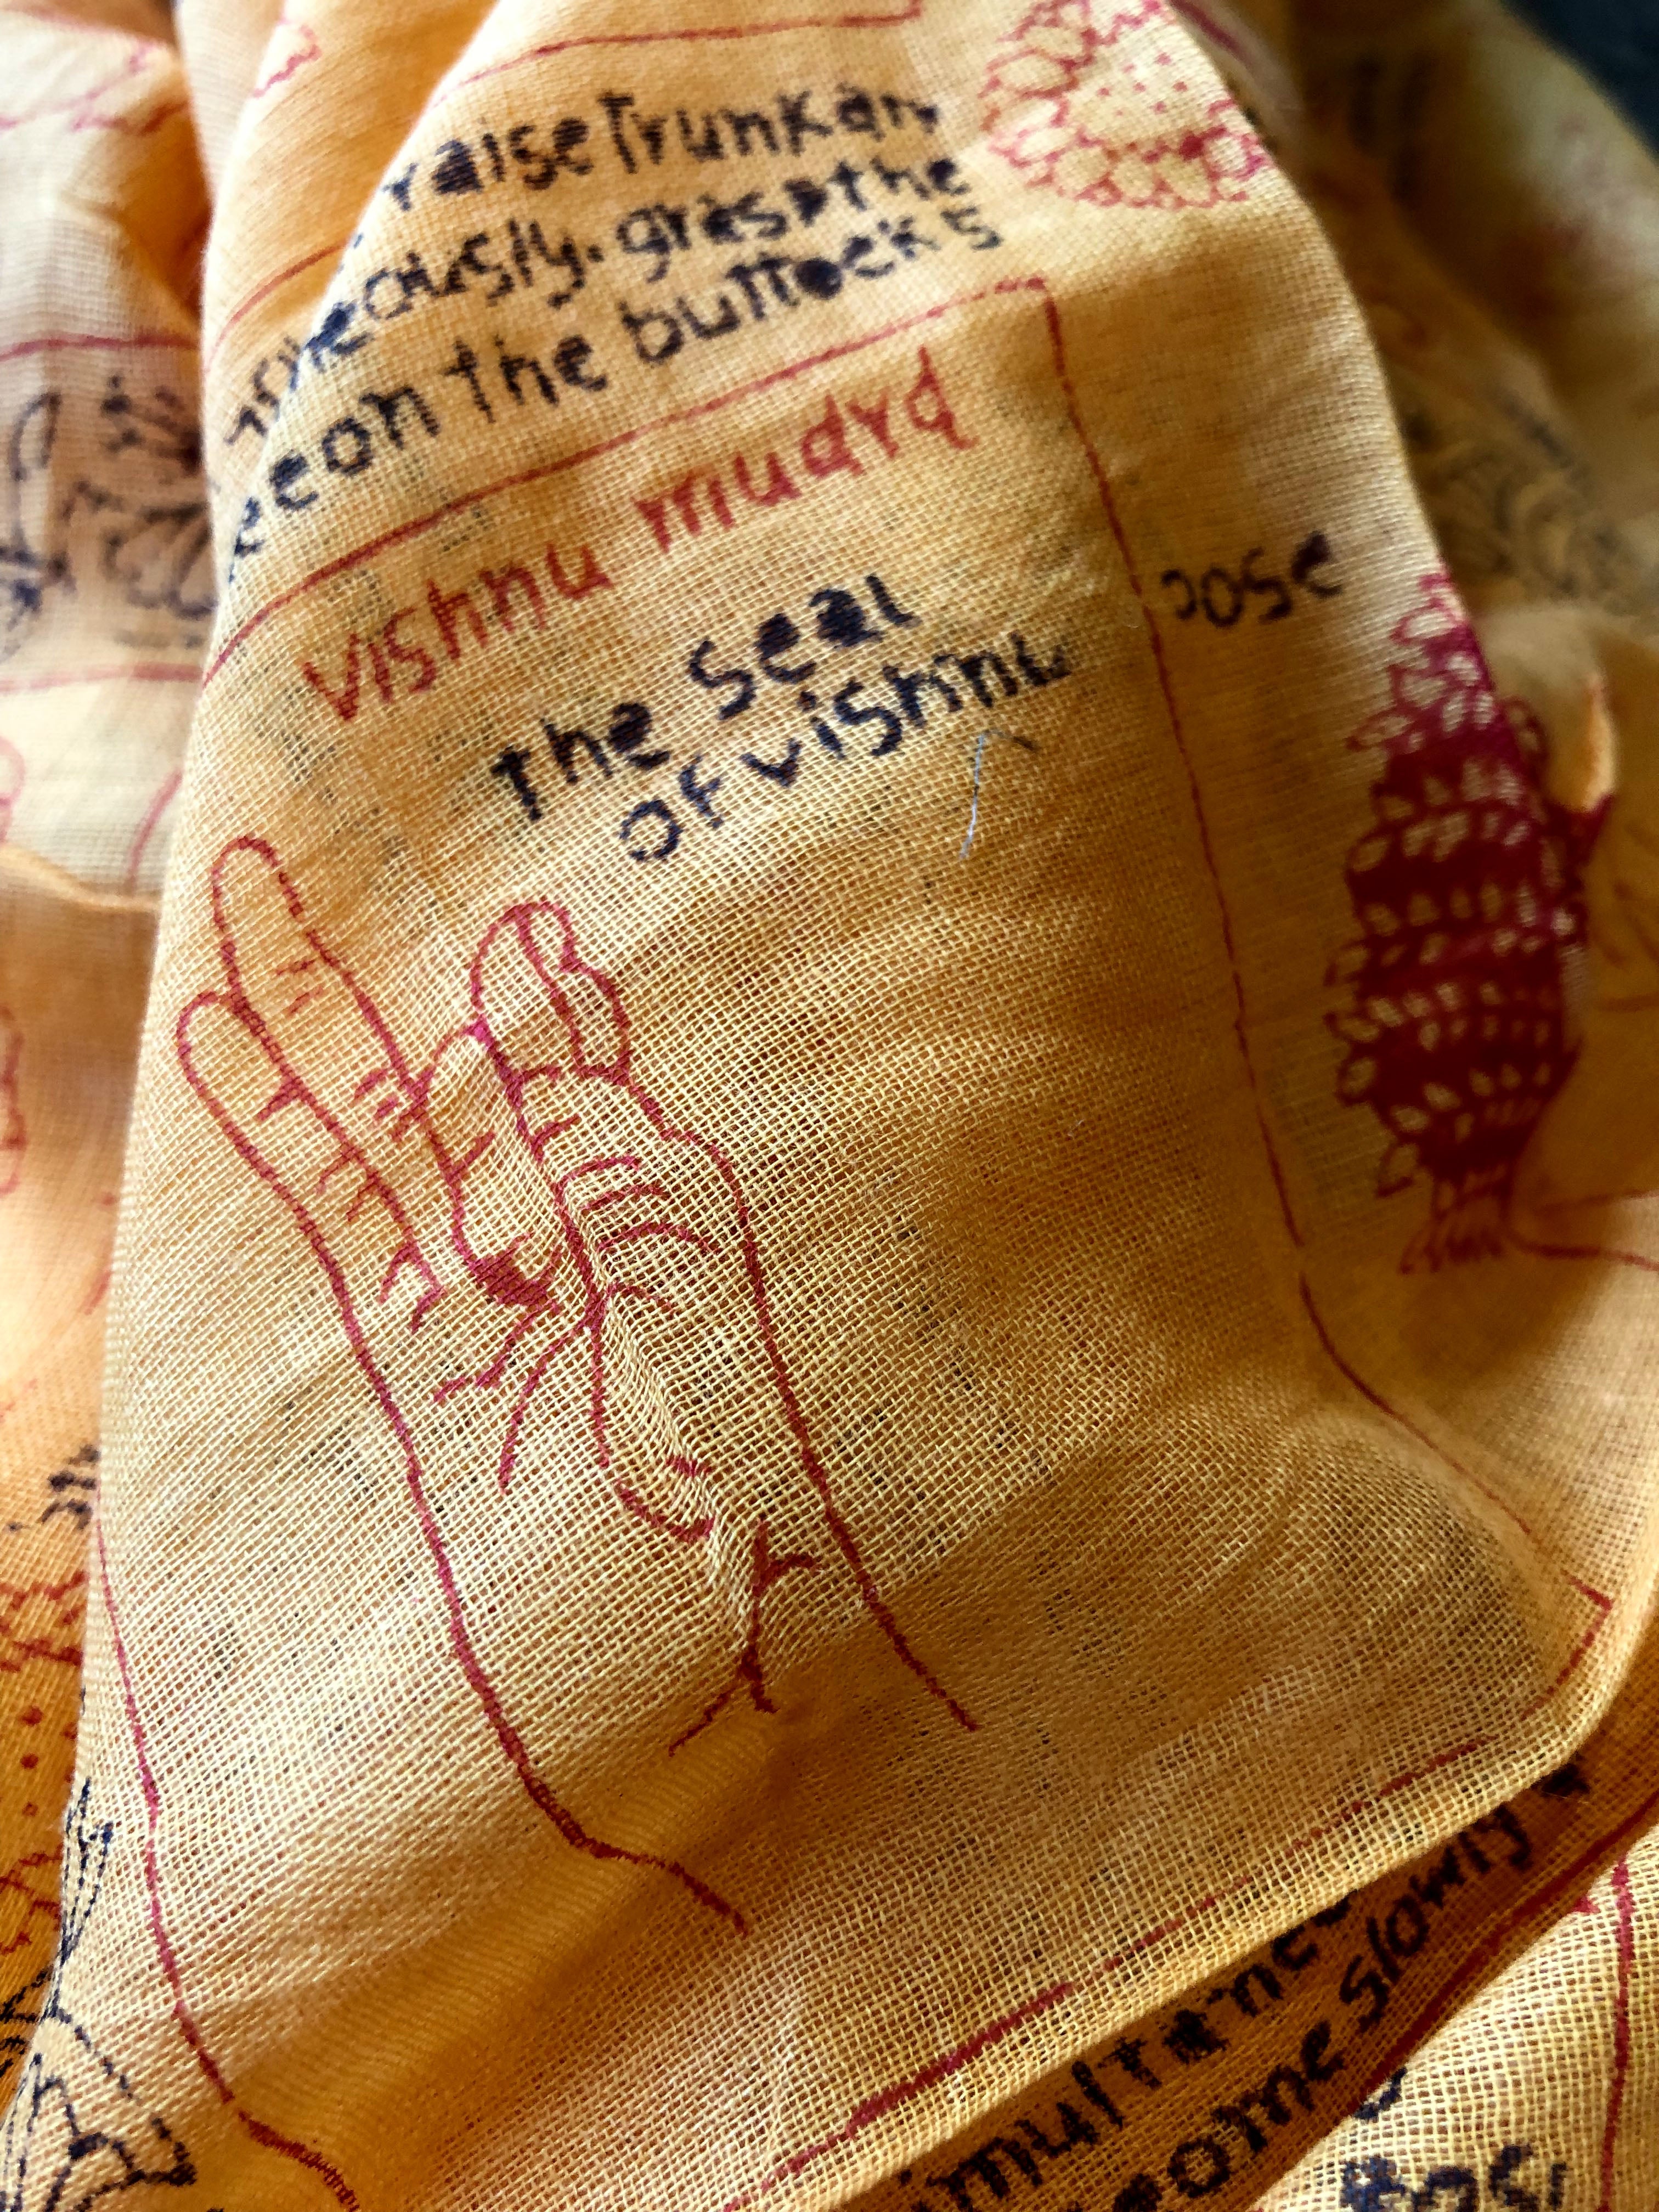 raise Trunk an
neously. grasp the
on the buttocks
vishnu mudra
the seal
of vishnu
pose
slowly